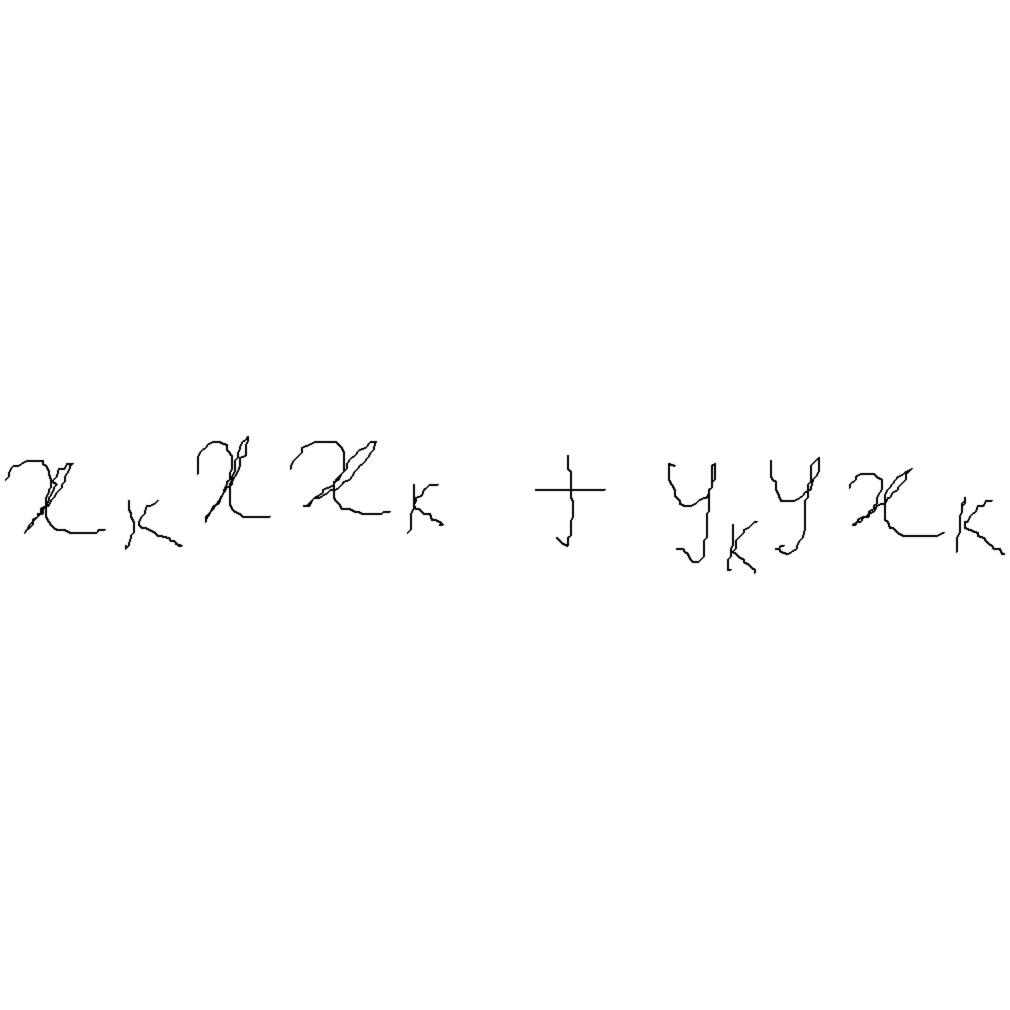 x_k x x_k + y_k y x_k